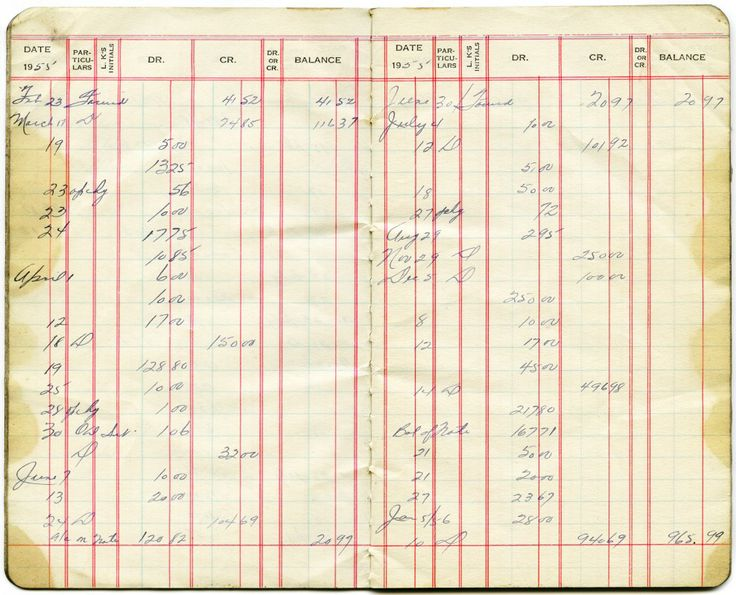 DATE PARTICULARS L. K'S INITIALS DR. CR. DR. OR CR. BALANCE
1955
Feb 23 Forward 4152 4152
March 17 D 7485 11637
19 500
1325
23 op chg 56
23 1000
24 1775
1085
April 1 600
1000
12 1700
18 D 15000
19 12880
25 1000
28 op chg 100
30 106
D 3200
June 7 1000
13 2000
24 D 10469
a/c on Note 12082 2097
DATE PARTICULARS L. K'S INITIALS DR. CR. DR. OR CR. BALANCE
1955
June 30 Forward 2097 2097
July 4 1000
12 D 10192
5100
18 5000
27 op chg 72
Aug 29 295
Nov 29 D 25000
Dec 5 D 10000
25000
8 1000
12 1700
4500
14 D 49698
21780
Bal of Note 16771
21 5000
21 2000
27 2367
Jan 5/56 2800
10 D 94069 965.99